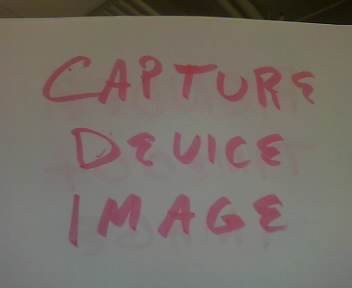 CAPTURE
DEVICE
IMAGE